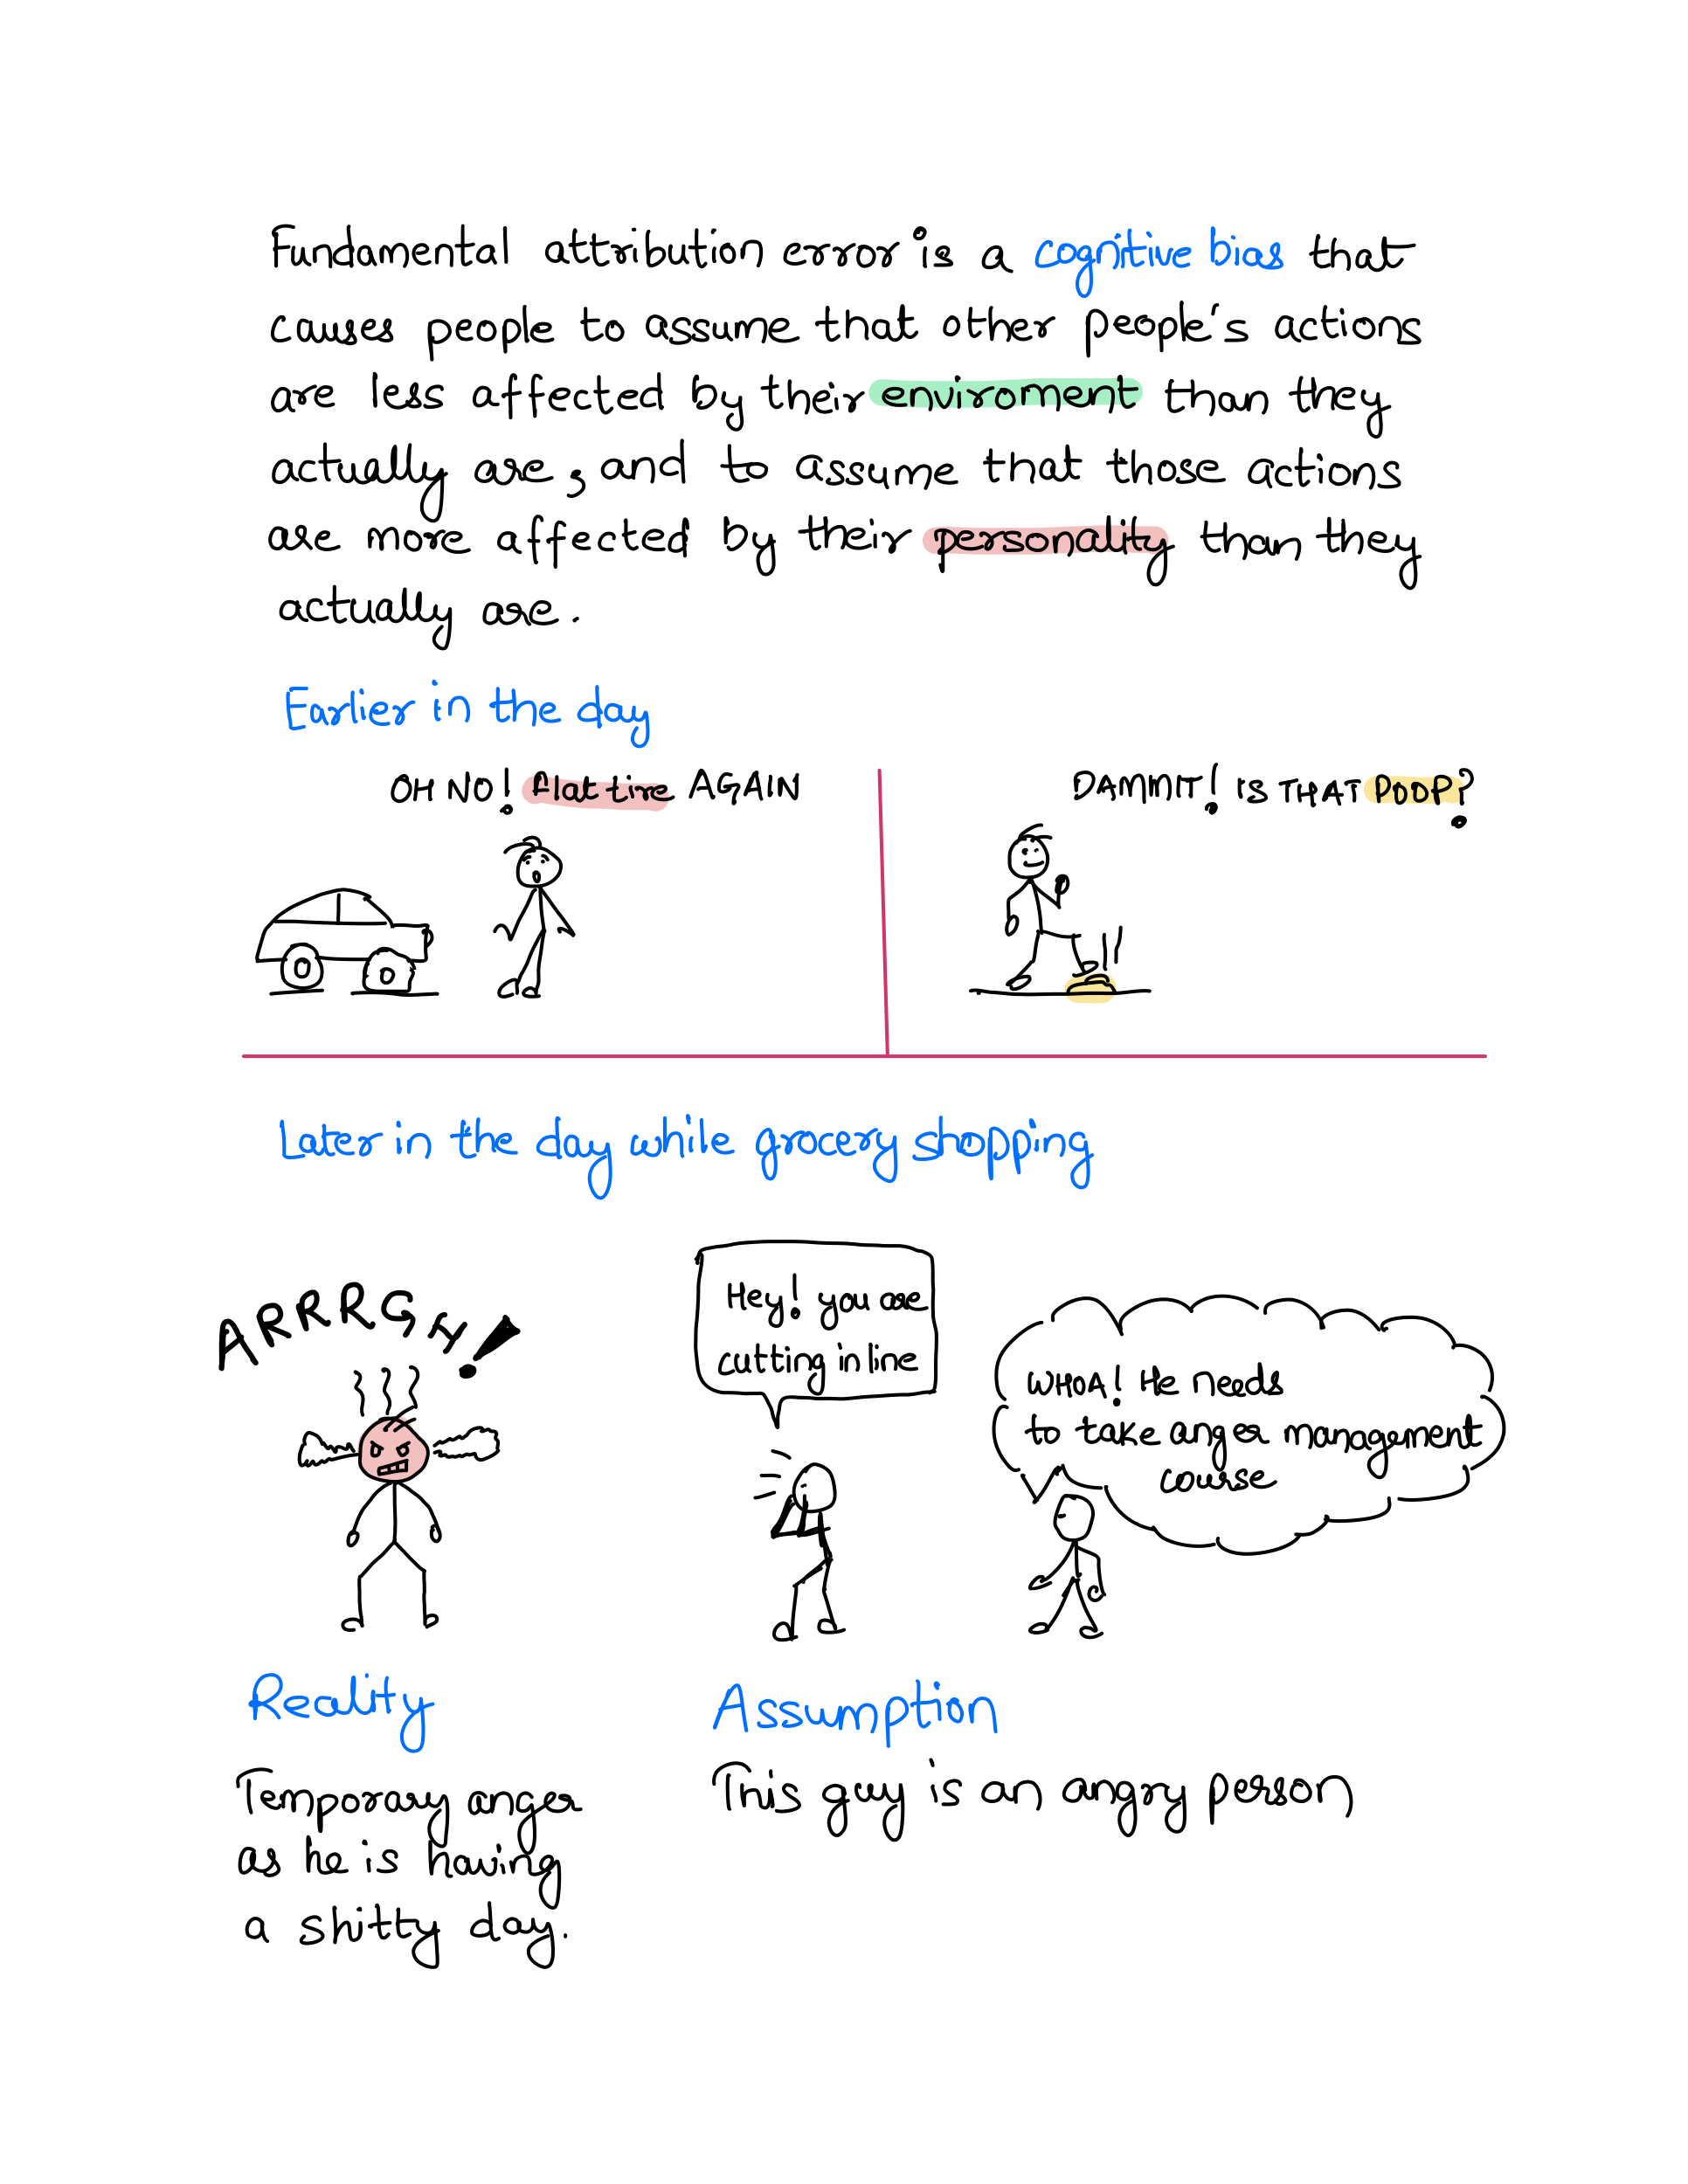 Fundamental attribution error is a cognitive bias that
causes people to assume that other people's actions
are less affected by their enviroment than they
actually are, and to assume that those actions
are more affected by their personality than they
actually are.
Earlier in the day
OH NO! flat tire AGAIN
DAMMIT! IS THAT POOP?
Later in the day while grocery shopping
ARRRGH!
Hey! you are
cutting in line
WHOA! He needs
to take anger management
course
Reality
Temporary anger
as he is having
a shitty day.
Assumption
This guy is an angry person